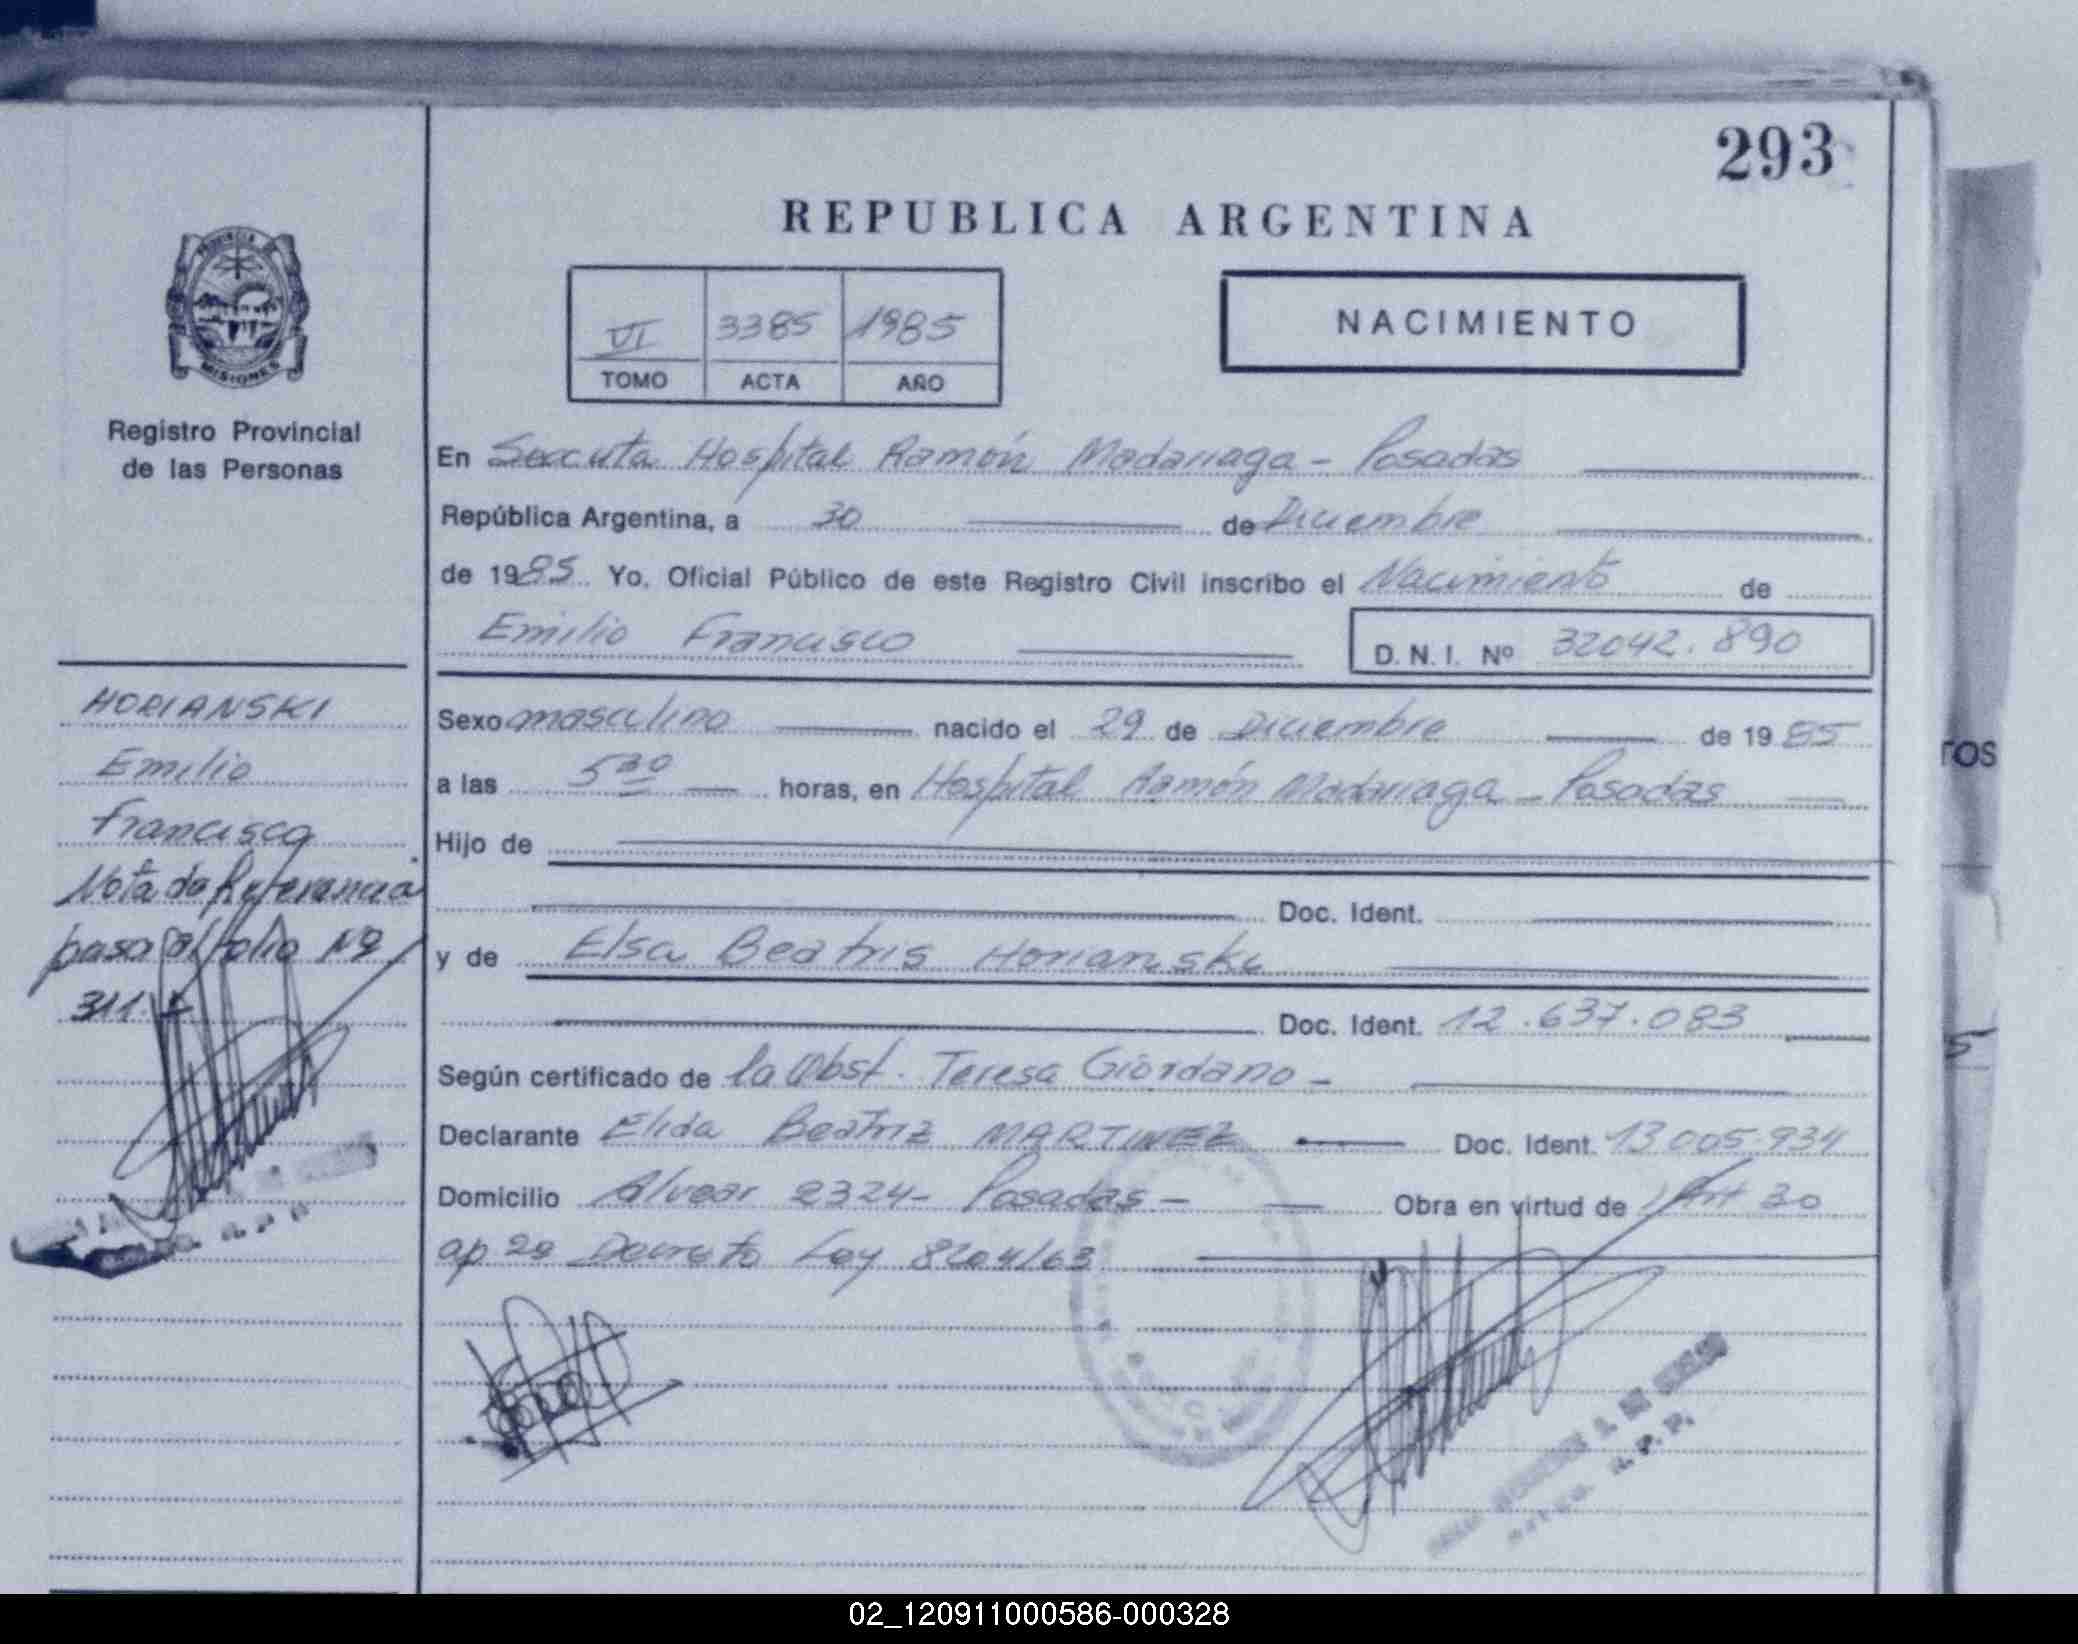 293
REPUBLICA ARGENTINA
PROVINCIA DE
MISIONES
Registro Provincial
de las Personas
VI 3385 1985
TOMO ACTA AÑO
NACIMIENTO
En Seccuta Hospital Ramón Madariaga - Posadas
República Argentina, a 30 de Diciembre
de 1985 Yo, Oficial Público de este Registro Civil inscribo el Nacimiento de
Emilio Francisco
D. N. I. Nº 32042.890
HORIANSKI
Emilio
Francisco
Nota de Referencia
pasa al folio Nº
311.
Sexo masculino nacido el 29 de Diciembre de 1985
a las 5 30 horas, en Hospital Ramón Madariaga - Posadas
Hijo de
Doc. Ident.
y de Elsa Beatris Horianski
Doc. Ident. 12.637.083
Según certificado de la Obst. Teresa Giordano -
Declarante Elida Beatriz MARTINEZ Doc. Ident. 13.005.934
Domicilio Alvear 2324 - Posadas - Obra en virtud de Art 30
ap 2º Decreto Ley 8204/63
R. P. P.
TOS
5
02_120911000586-000328